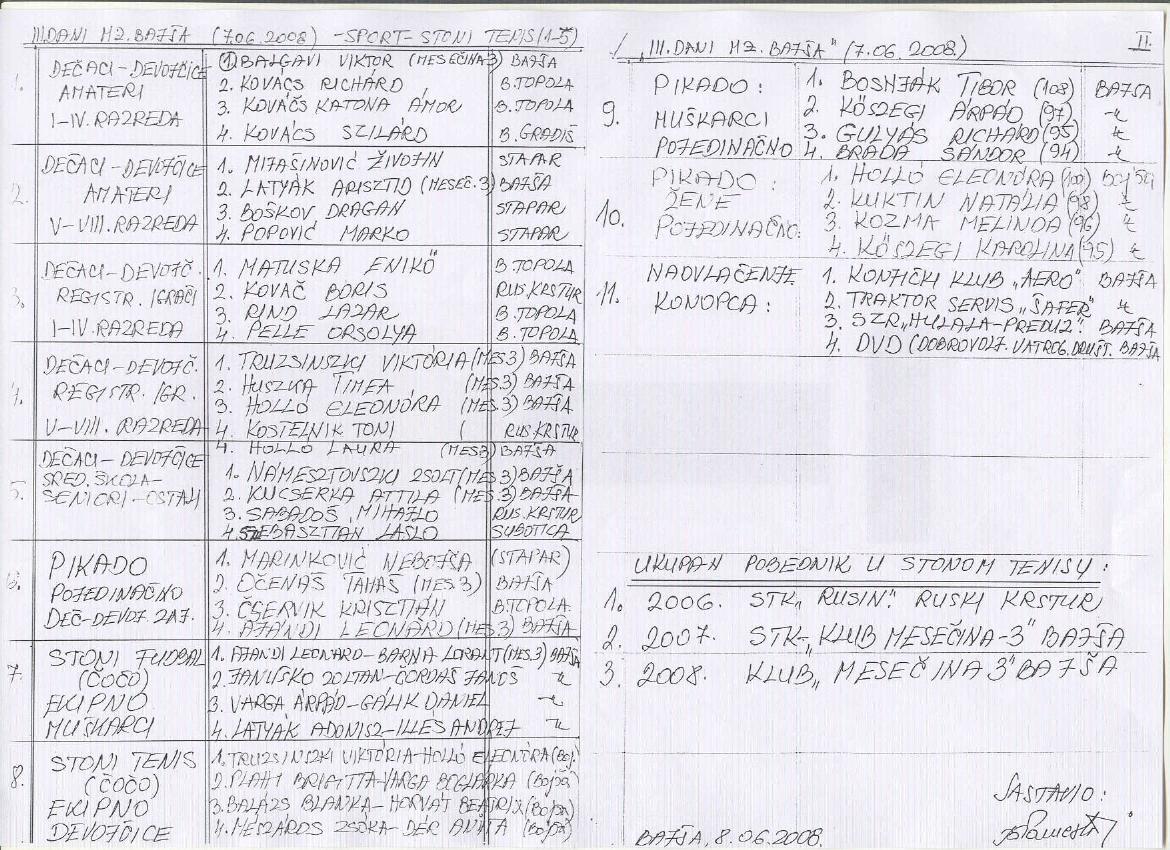 III.DANI MZ.BAJŠA (7.06.2008) -SPORT-STONI TENIS(1-5)
1. DEČACI-DEVOJČICE
AMATERI
I-IV.RAZREDA
1. BALGAVI VIKTOR (MESEČINA-3) BAJŠA
2. KOVÁCS RICHÁRD B.TOPOLA
3. KOVÁCS KATONA ÁMOR B.TOPOLA
4. KOVÁCS SZILÁRD B.GRADIŠ
2. DEČACI-DEVOJČICE
AMATERI
V-VIII.RAZREDA
1. MIJAŠINOVIĆ ŽIVOJIN STAPAR
2. LATYÁK ARISZTID (MESEČ.3) BAJŠA
3. BOŠKOV DRAGAN STAPAR
4. POPOVIĆ MARKO STAPAR
3. DEČACI-DEVOJČ.
REGISTR. IGRAČI
I-IV.RAZREDA
1. MATUSKA ENIKŐ B.TOPOLA
2. KOVAČ BORIS RUS.KRSTUR
3. RIND LAZAR B.TOPOLA
4. PELLE ORSOLYA B.TOPOLA
4. DEČACI-DEVOJČ.
REGISTR. IGR.
V-VIII.RAZREDA
1. TRUZSINSZKI VIKTÓRIA (MES3) BAJŠA
2. HUSZKA TÍMEA (MES.3) BAJŠA
3. HOLLÓ ELEONÓRA (MES.3) BAJŠA
4. KOSTELNIK TONI ( RUS.KRSTUR
4. HOLLÓ LAURA (MES3) BAJŠA
5. DEČACI-DEVOJČICE
SRED.ŠKOLA-
SENIORI-OSTALI
1. NÁMESZTOVSZKI ZSOLT (MES.3) BAJŠA
2. KUCSERKA ATTILA (MES.3) BAJŠA
3. SABADOŠ MIHAJLO RUS.KRSTUR
4. SZEBASZTIAN LASLO SUBOTICA
6. PIKADO
POJEDINAČNO
DEČ-DEVOJ ZAJ.
1. MARINKOVIĆ NEBOJŠA (STAPAR)
2. OČENÁŠ TAMAŠ (MES3) BAJŠA
3. CSERVIK KRISZTIÁN B.TOPOLA.
4. AJANDI LEONARD (MES3) BAJŠA
7. STONI FUDBAL
(ČOČO)
EKIPNO
MUŠKARCI
1. AJANDI LEONARD-BARNA LORANT (MES3) BAJŠA
2. JANUŠKO ZOLTAN-GORDAŠ JANOŠ -"-
3. VARGA ÁRPÁD-GALIK DANIEL -"-
4. LATYÁK ADONISZ-ILLES ANDREJ -"-
8. STONI TENIS
(ČOČO)
EKIPNO
DEVOJČICE
1. TRUZSINSZKI VIKTÓRIA-HOLLÓ ELEONÓRA (Boj.
2. PLAHI BRIGITTA-VARGA BOGLARKA (Bojša)
3. BALÁZS BLANKA-HORVAT BEATRIX (Bojša)
4. MÉSZÁROS ZSÓKA-DÉR ANITA (Bojša)
„III.DANI MZ.BAJŠA" (7.06.2008) II.
9. PIKADO:
MUŠKARCI
POJEDINAČNO
1. BOSNJÁK TIBOR (108) BAJŠA
2. KŐSZEGI ÁRPÁD (97) -"-
3. GULYÁS RICHÁRD (95) -"-
4. BRADA SÁNDOR (94) -"-
10. PIKADO:
ŽENE
POJEDINAČNO:
1. HOLLÓ ELEONÓRA (100) Bojša
2. KUKTIN NATÁLIA (98) -"-
3. KOZMA MELINDA (96) -"-
4. KŐSZEGI KAROLINA (95) -"-
11. NADVLAČENJE
KONOPCA:
1. KONJIČKI KLUB „AERO" BAJŠA
2. TRAKTOR SERVIS „ŠAFER" -"-
3. SZR„HULALA-PREDUZ." BAJŠA
4. DVD (DOBROVOLJ. VATROG.DRUŠT. BAJŠA
UKUPAN POBEDNIK U STONOM TENISU:
1. 2006. STK„RUSIN". RUSKI KRSTUR
2. 2007. STK-„KLUB MESEČINA-3" BAJŠA
3. 2008. KLUB„MESEČINA 3" BAJŠA
SASTAVIO:
BAJŠA, 8.06.2008.